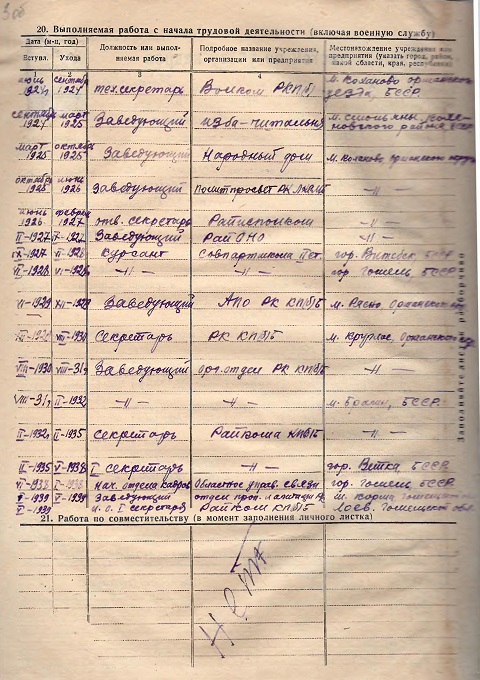 20. Выполняемая работа с начала трудовой деятельности (включая военную службу)
Дата (м-ц, год)
Вступл. Ухода
Должность или выполняемая работа
Подробное название учреждения, организации или предприятия
Местонахождение учреждения или предприятия (указать город, район,
3 4
июль 1924 сентябрь 1924 тех. секретарь Волком РКП(б) м. Коханово
уезда, БССР
сентябрь 1924 март 1925 Заведующий изба-читальня
март 1925 октябрь 1925 Заведующий Народный дом м. Коханово
октябрь 1925 июнь 1926 Заведующий Политпросвет РК ЛКСМБ —//—
июнь 1926 февраль 1927 отв. секретарь Райисполком —//—
II-1927 1927 Заведующий РайОНО —//—
IX-1927 1928 Курсант Совпартшкола II ст. гор. Витебск, БССР
VI-1928 VI-1929 —//— —//— гор. Гомель, БССР
VI-1929 XII-1929 Заведующий АПО РК КП(б)Б м. Рясно,
VIII-1930 Секретарь РК КП(б)Б м. Круглое,
VIII-1930 VIII-31 Заведующий орг. отдел РК КП(б)Б —//—
VIII-31 II-1932 —//— —//— м. Брагин, БССР
II-1932 II-1935 секретарь Райкома КП(б)Б —//—
II-1935 V-1938 I секретарь —//— гор. Ветка, БССР
VI-1938 I-1938 нач. отдела кадров Областное управ. связи гор. Гомель, БССР
1939 V-1939 Заведующий отдел проп. и агитации м. Корма,
V-1939 и. о. I секретаря Райком КП(б)Б Лоев, Гомельской обл.
Заполняйте листок разборчиво
21. Работа по совместительству (в момент заполнения личного листка)
Нет